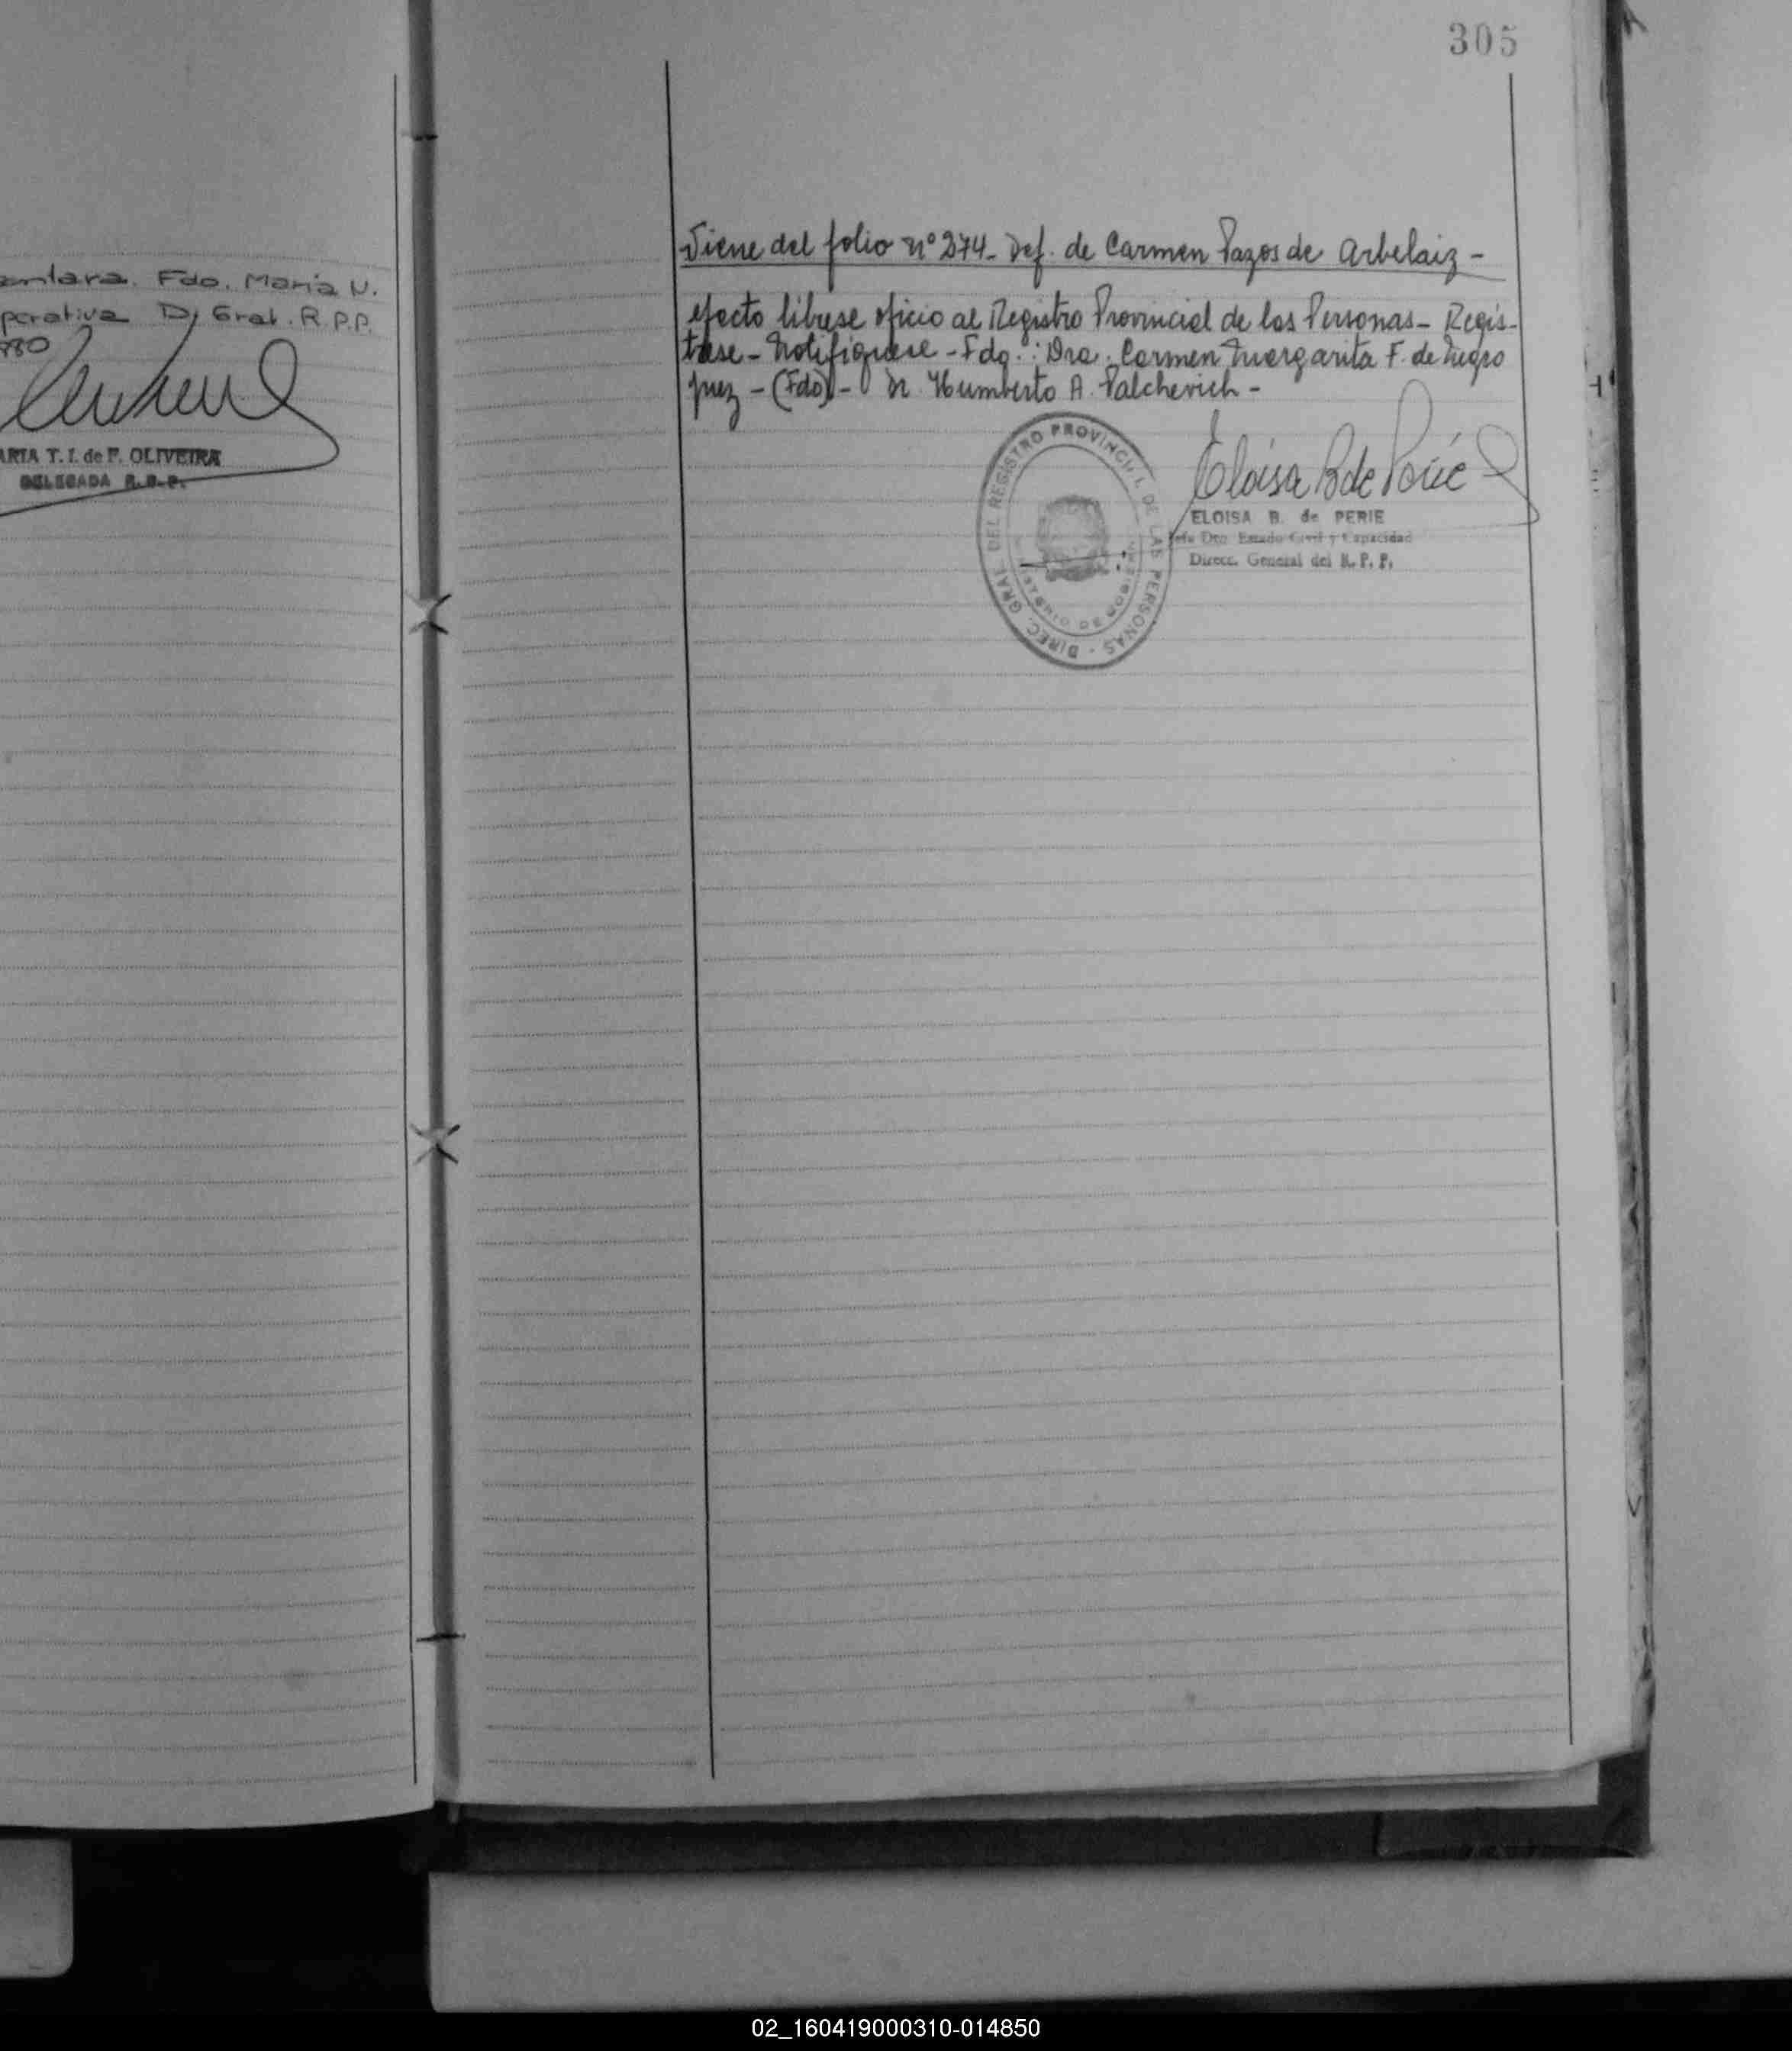 305
antara. Fdo. Maria N.
perativa D. Gral. R.P.P.
980
ARIA T. I. de F. OLIVEIRA
DELEGADA R.P.P.
Viene del folio nº 274- Def. de Carmen Pazos de Arbelaiz -
efecto líbrese oficio al Registro Provincial de las Personas- Regís-
trese - Notifíquese - Fdo.: Dra. Carmen Margarita F. de Negro
Juez - (Fdo) - Dr. Humberto A. Palchevich -
DIREC. GRAL. DEL REGISTRO PROVINCIAL DE LAS PERSONAS -
MINISTERIO DE GOBIERNO
Eloisa B de Perié
ELOISA B. de PERIE
Jefe Dto. Estado Civil y Capacidad
Direcc. General del R. P. P.
02_160419000310-014850